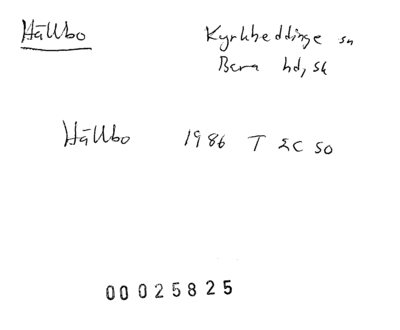 Hällbo
Kyrkheddinge sn
Bara hd, Sk
Hällbo 1986 T 2C SO
00025825